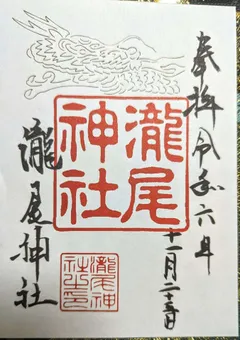 奉拝 令和六年
十一月二十三日
瀧尾
神社
瀧尾神社
瀧尾神
社之印